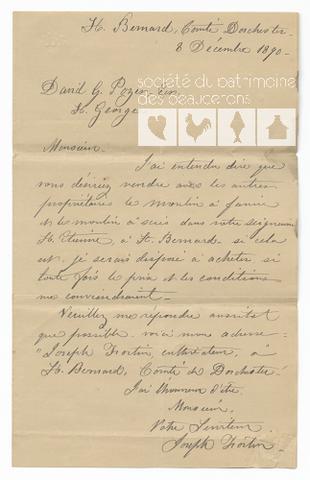 St. Bernard, Comté Dorchester
8 Décembre 1890
David G. Pozer Esr.
St. George
société du patrimoine
des beaucerons
Monsieur
J'ai entendu dire que
vous désiriez vendre avec les autres
propriétaires le moulin à farine
et le moulin à scies dans votre seigneurie
St. Etienne, à St. Bernard. si cela
est je serais disposé à acheter si
toute fois le prix et les conditions
me conviendraient
Veuillez me répondre aussitôt
que possible voici mon adresse
"Joseph Fortin, cultivateur, à
St. Bernard, Comté de Dorchester"
J'ai l'honneur d'être,
Monsieur,
Votre Serviteur
Joseph Fortin